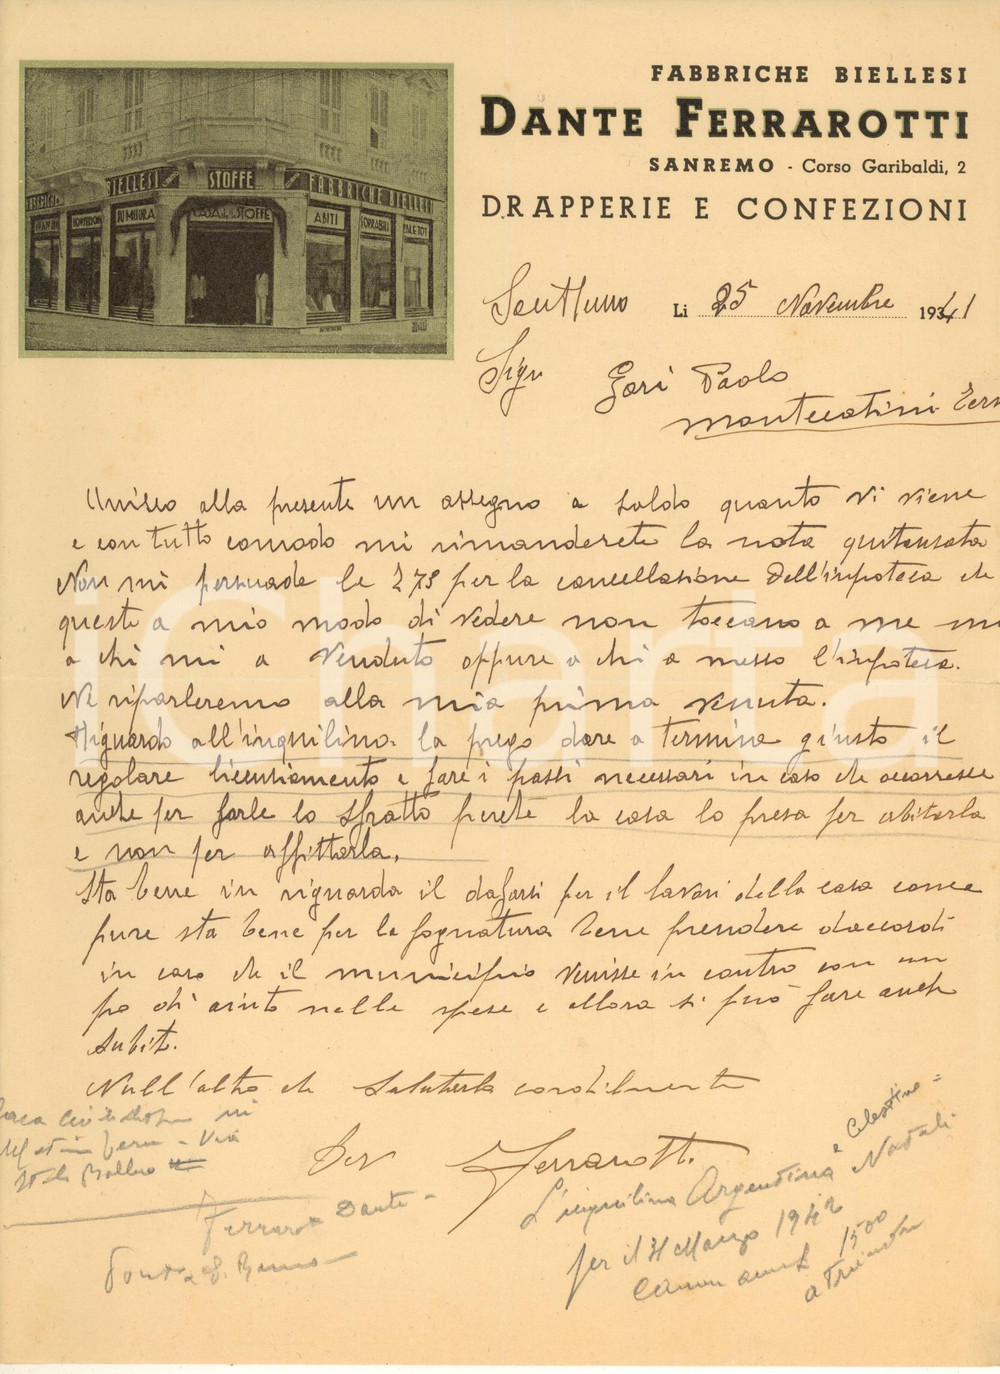 FABBRICHE BIELLESI
DANTE FERRAROTTI
SANREMO - Corso Garibaldi, 2
DRAPPERIE E CONFEZIONI
BIELLESI STOFFE FABBRICHE BIELLESI
SU MISURA CASA DELLE STOFFE ABITI SOPRABITI PALETOT
Li 25 Novembre 1941
Sigr Gori Paolo
Montecatini Term
Unisco alla presente un assegno a saldo quanto vi viene
e con tutto comodo mi rimanderete la nota quitansata
Non mi persuade le 273 per la concellasione dell'ipoteca che
queste a mio modo di vedere non toccano a me m
a chi mi a venduto oppure a chi a messo l'ipoteca.
Ne riparleremo alla mia prima venuta.
Riguardo all'inquilino la prego dare a termine giusto il
regolare licensiamento e fare i passi necessari in caso che occorresse
anche per farle lo sfratto perchè la casa lo presa per abitarla
e non per affittarla.
Sta bene in riguardo il dafarsi per il lavori della casa come
pure sta bene per la fognatura bene prendere daccordi
in caso che il municipio venisse in contro con un
po di aiuto nelle spese e allora si può fare anche
subito.
Null'altro che salutarla cordialmente
Dev Ferrarotti
L'inquilina Argentina Natali
e Celestino =
per il 31 Marzo 1942
1500
Ferrarotti Dante -